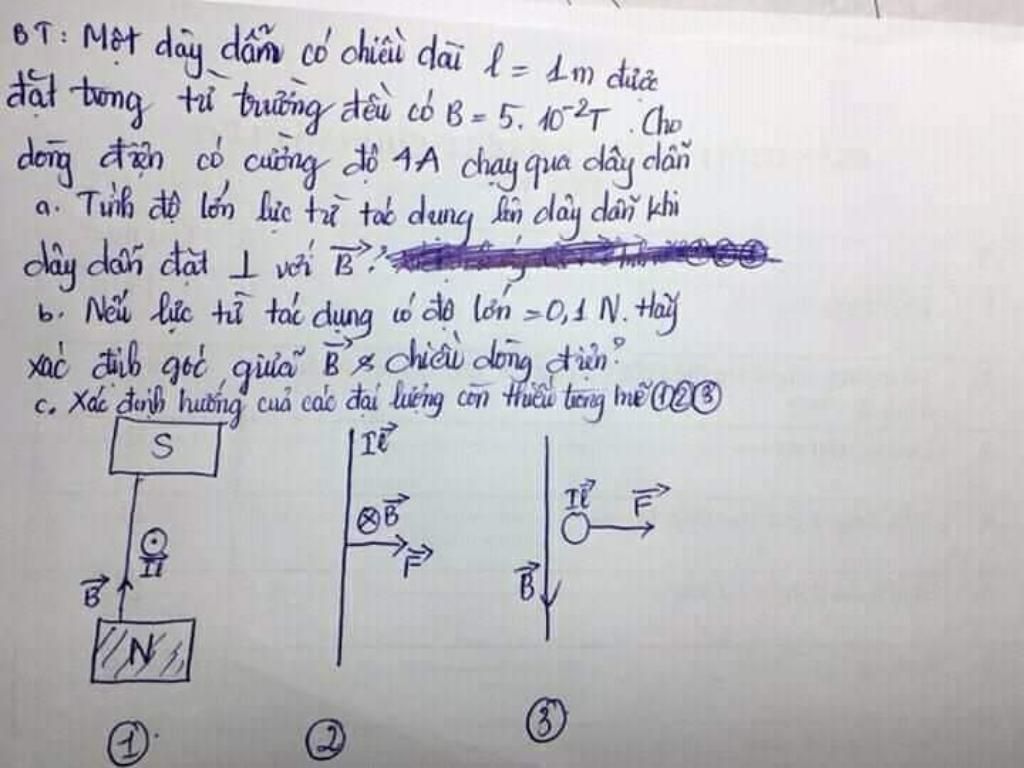 BT: Một dây dẫn có chiều dài l = 1m được
đặt trong từ trường đều có B = 5. 10⁻²T. Cho
dòng điện có cường độ 4A chạy qua dây dẫn
a. Tính độ lớn lực từ tác dụng lên dây dẫn khi
dây dẫn đặt ⊥ với B⃗?
b. Nếu lực từ tác dụng có độ lớn = 0,1 N. Hãy
xác định góc giữa B⃗ & chiều dòng điện?
c. Xác định hướng của các đại lượng còn thiếu trong hvẽ ①②③
S
B⃗
N
①
Il⃗
⊗ B⃗
F⃗
②
Il⃗
F⃗
B⃗
③